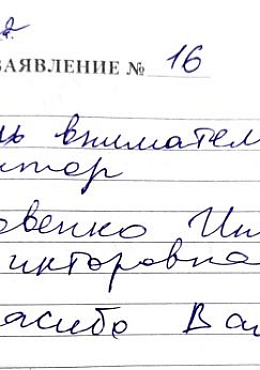 ЗАЯВЛЕНИЕ № 16
внимател
ктор
овенко Ин
икторовна
асибо Ва